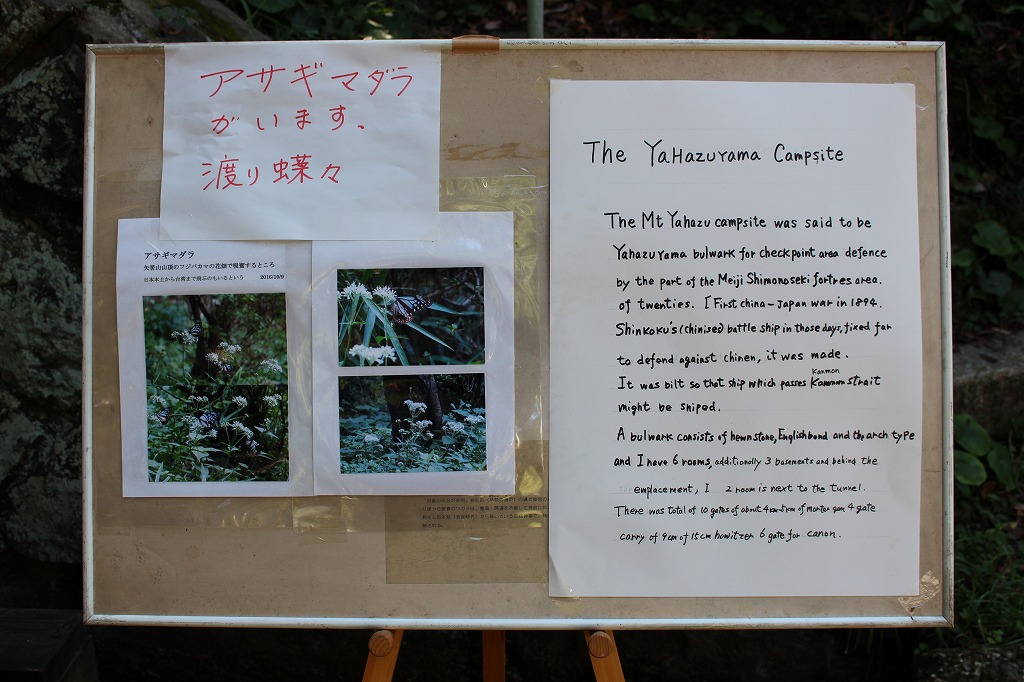 アサギマダラ
がいます。
渡り蝶々
アサギマダラ
矢筈山山頂のフジバカマの花畑で吸蜜するところ
日本本土から台湾まで飛ぶのもいるという 2016/10/9
The YaHazuyama Campsite
The Mt Yahazu campsite was said to be
Yahazuyama bulwark for checkpoint area defence
by the part of the Meiji Shimonoseki fortres area.
of twenties. [First china-Japan war in 1894.
Shinkoku's (chinised) battle ship in those days, fixed far
to defend against chinen, it was made.
Kanmon
It was bilt so that ship which passes Kanmon strait
might be sniped.
A bulwark consists of hewn stone, English bond and the arch type
and I have 6 rooms, additionally 3 basements and behind the
emplacement, I 2 room is next to the tunnel.
There was total of 10 gates of about 4 gate
carry of 9cm of 15cm howitzer 6 gate for canon.